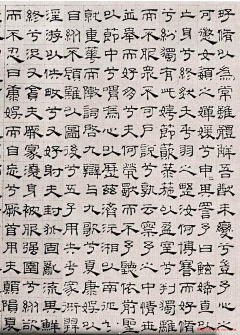 好脩以為常雖體解吾猶未變兮豈余心之
可懲女嬃之嬋媛兮申申其詈予曰鮌婞直以
亡身兮終然殀乎羽之野汝何博謇而好脩
兮紛獨有此姱節薋菉葹以盈室兮判獨離
而不服眾不可戶說兮孰云察余之中情世
並舉而好朋兮夫何煢獨而不予聽依前聖
以節中兮喟憑心而歷茲濟沅湘以南征兮
就重華而敶詞啟九辯與九歌兮夏康娛以
自縱不顧難以圖後兮五子用失乎家巷羿
淫遊以佚畋兮又好射夫封狐固亂流其鮮
終兮浞又貪夫厥家澆身被服強圉兮縱欲
而不忍日康娛而自忘兮厥首用夫顛隕夏